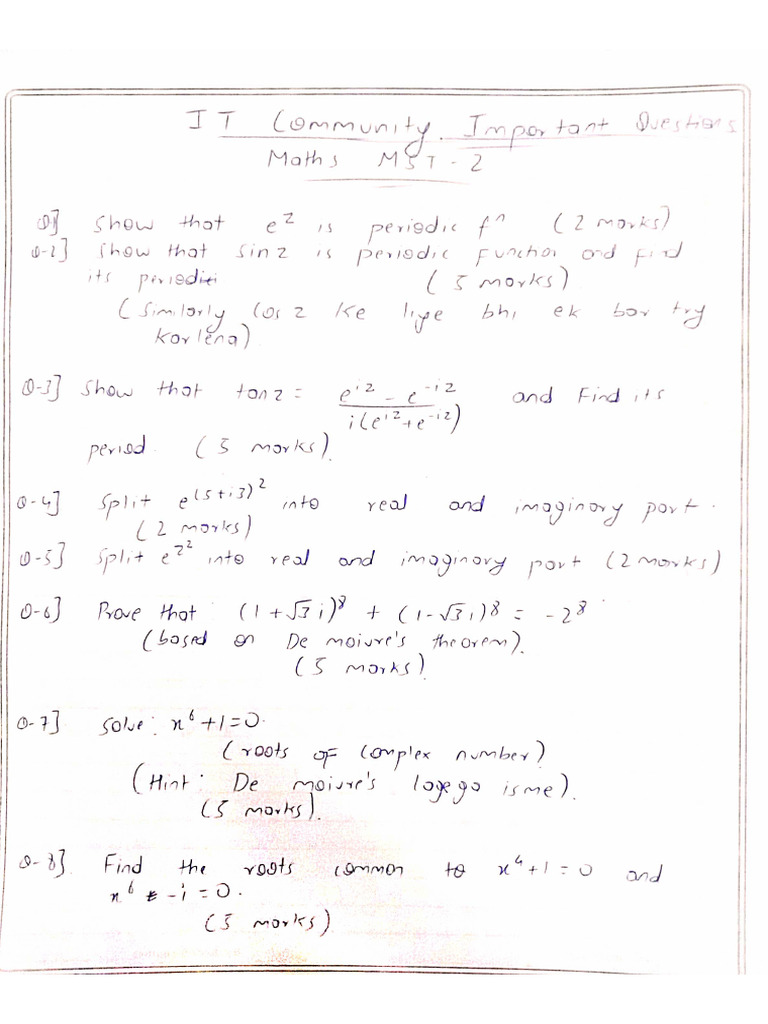 IT Community Important Questions
Maths MST-2
Q1] Show that e^z is periodic fⁿ (2 marks)
Q-2] Show that sinz is periodic function and find
its period (5 marks)
(Similarly Cos z ke liye bhi ek bar try
karlena)
Q-3] Show that tanz = e^iz - e^-iz / i(e^iz + e^-iz) and find its
period. (5 marks).
Q-4] Split e^(5+i3)^2 into real and imaginary part.
(2 marks)
Q-5] Split e^z^2 into real and imaginary part (2 marks)
Q-6] Prove that: (1+√3i)^8 + (1-√3i)^8 = -2^8
(based on De moivre's theorem).
(5 marks).
Q-7] Solve: x^6+1=0.
(roots of complex number)
(Hint: De moivre's lagega isme).
(5 marks).
Q-8]. Find the roots common to x^4+1=0 and
x^6 -i=0.
(5 marks)